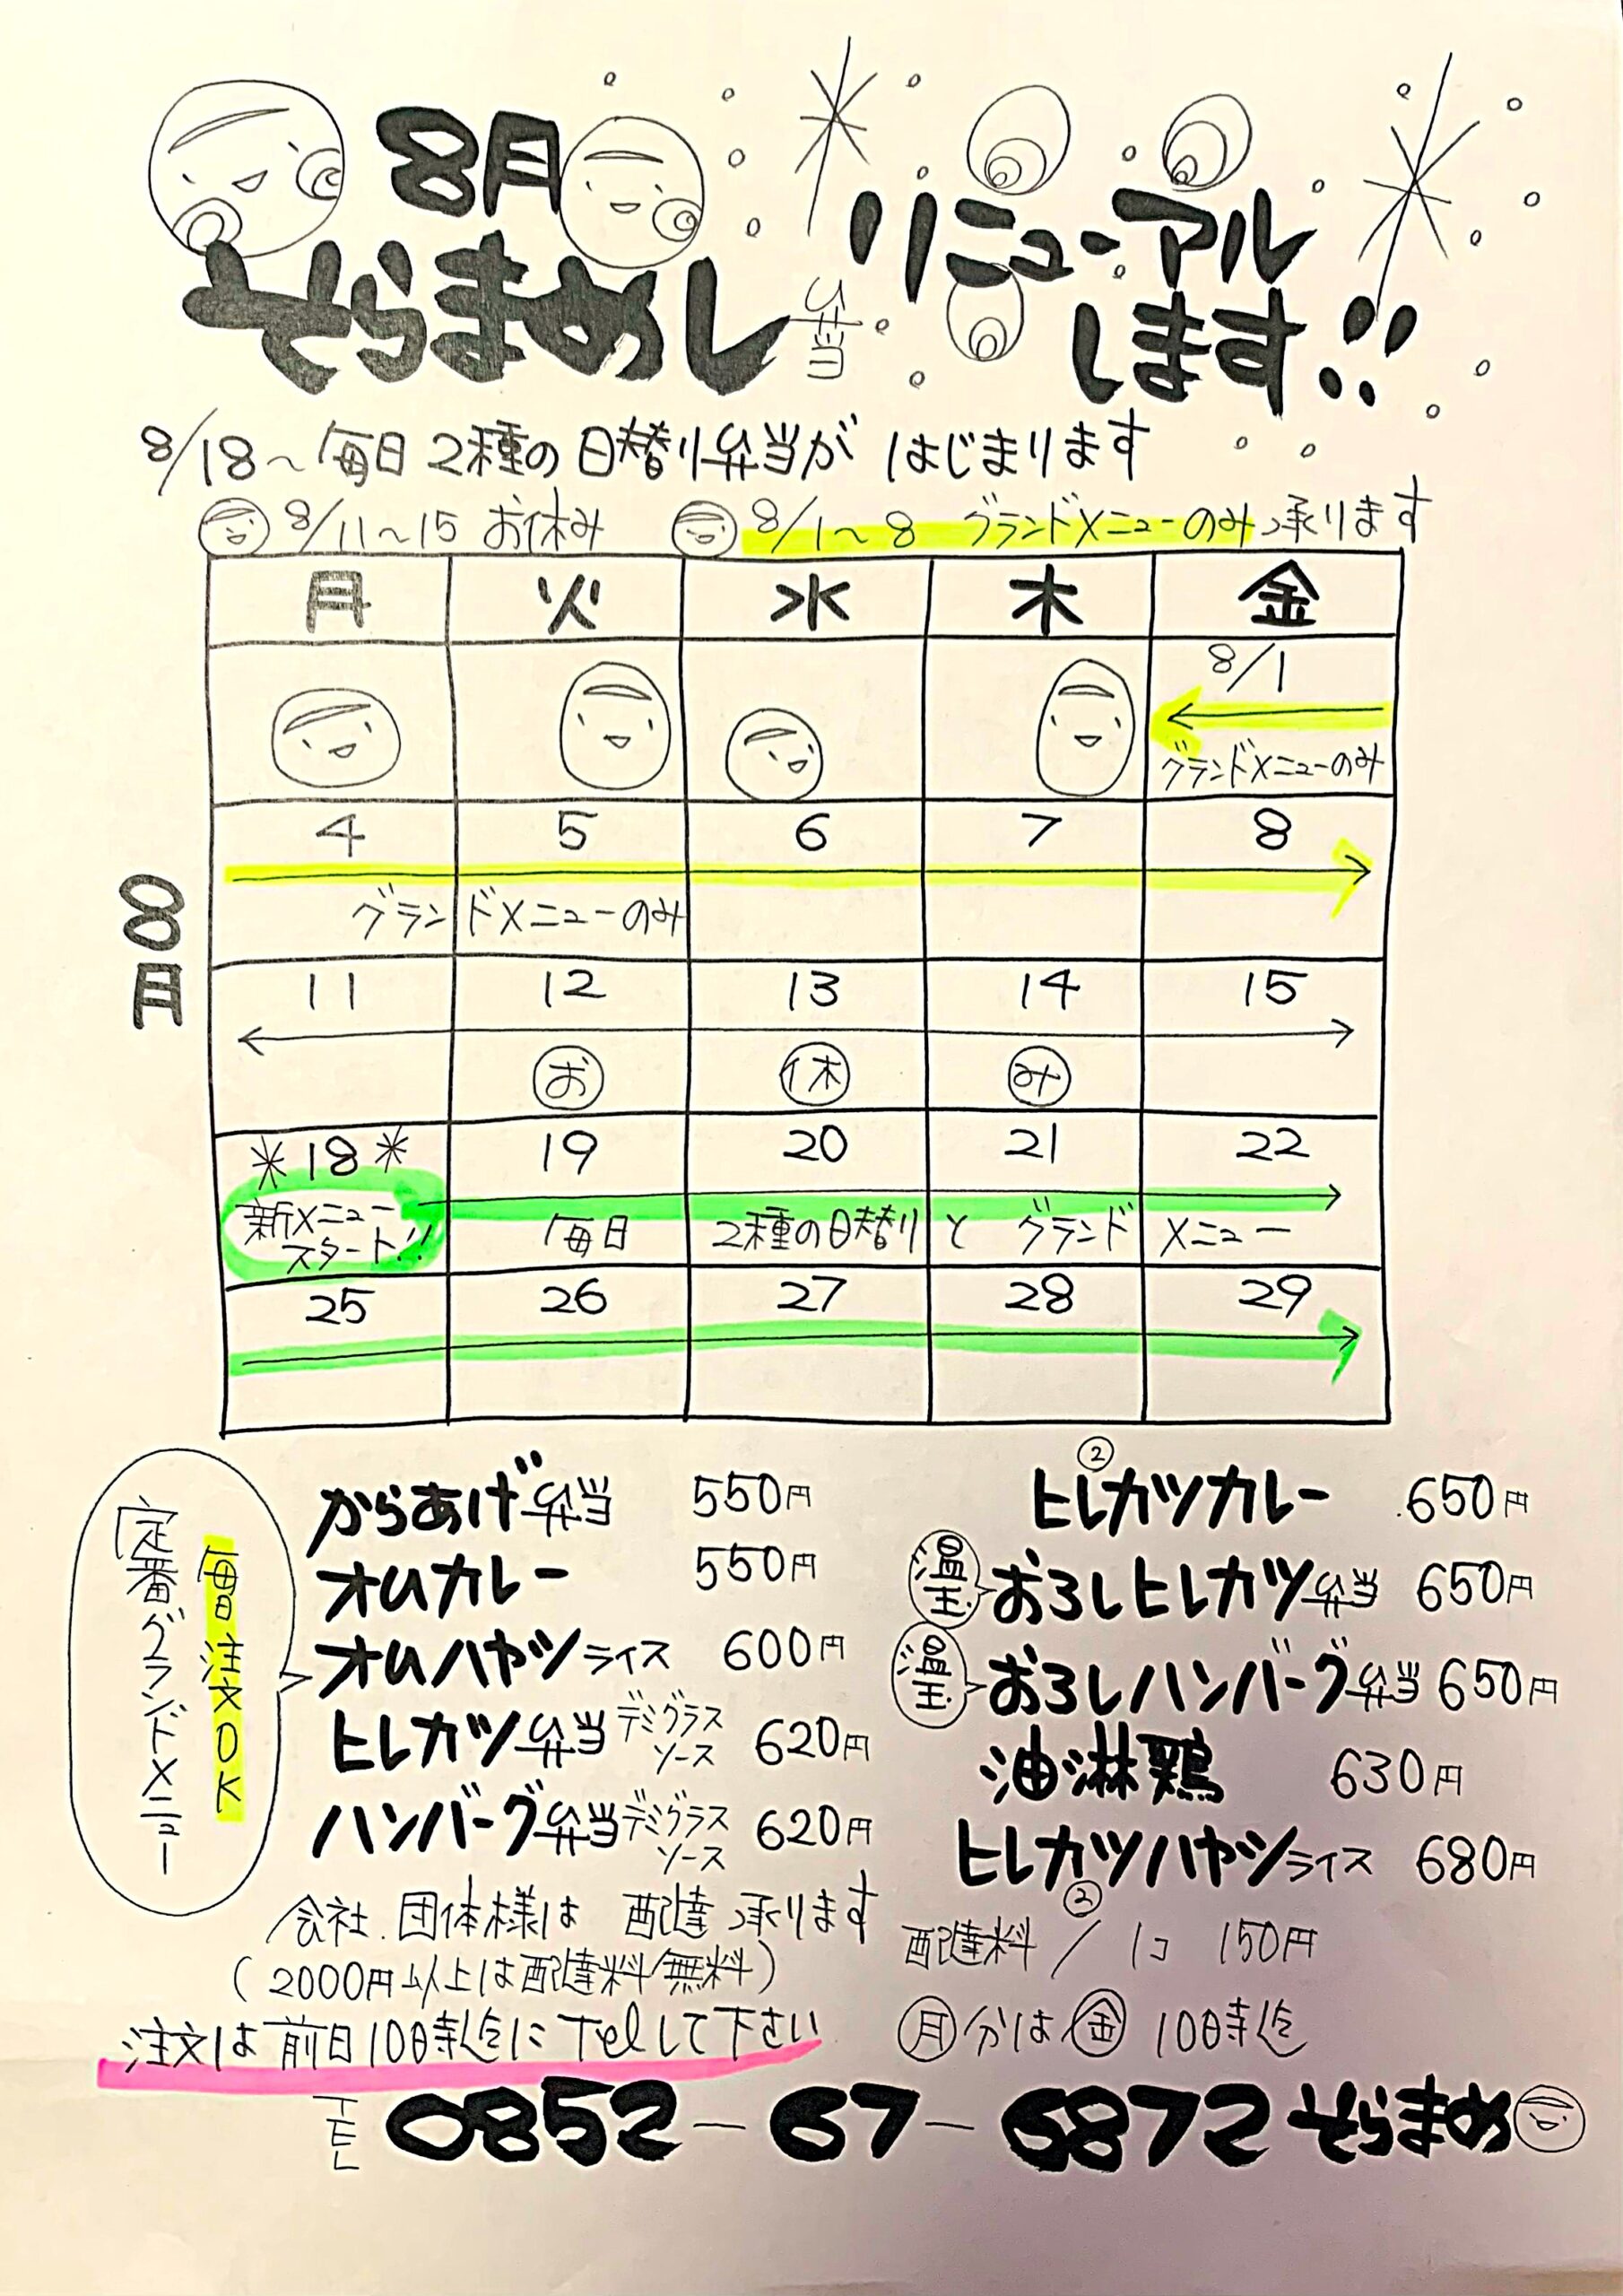 8月
そらまめし弁当
リニューアル
します!!
8/18〜毎日2種の日替り弁当がはじまります
8/11〜15 お休み 8/1〜8 グランドメニューのみ承ります
8月
月 火 水 木 金
8/1
グランドメニューのみ
4 5 6 7 8
グランドメニューのみ
11 12 13 14 15
お 休 み
*18* 19 20 21 22
新メニュー
スタート!!
毎日 2種の日替りと グランドメニュー
25 26 27 28 29
毎日注文OK
定番グランドメニュー
からあげ弁当 550円
オムカレー 550円
オムハヤシライス 600円
ヒレカツ弁当 デミグラス
ソース 620円
ハンバーグ弁当 デミグラス
ソース 620円
②
ヒレカツカレー 650円
温玉 おろしヒレカツ弁当 650円
温玉 おろしハンバーグ弁当 650円
油淋鶏 630円
ヒレカツハヤシライス 680円
②
会社.団体様は 配達承ります
(2000円以上は配達料無料)
配達料/1コ 150円
注文は前日10時迄にTelして下さい
月分は金10時迄
TEL 0852-67-6872 そらまめ